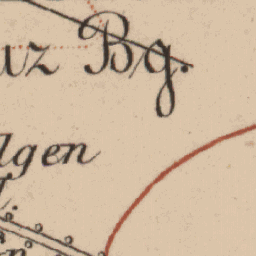 uz Bg.
lgen